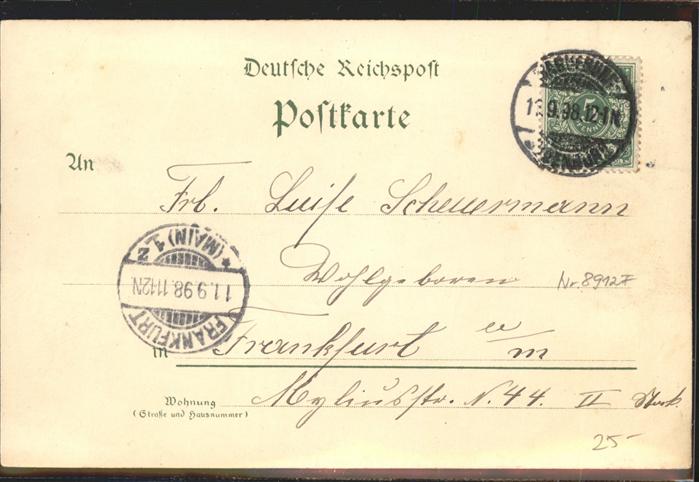 Deutsche Reichspost
Postkarte
11.9.98.12-1N
PFENNIG
An
Frl. Luise Scheuermann
Wohlgeboren
Nr. 8912
FRANKFURT
* (MAIN) 1 z
11.9.98.11-12N
in Frankfurt a/m
Wohnung
(Straße und Hausnummer)
Myliusstr. N. 44. II Stock.
25-